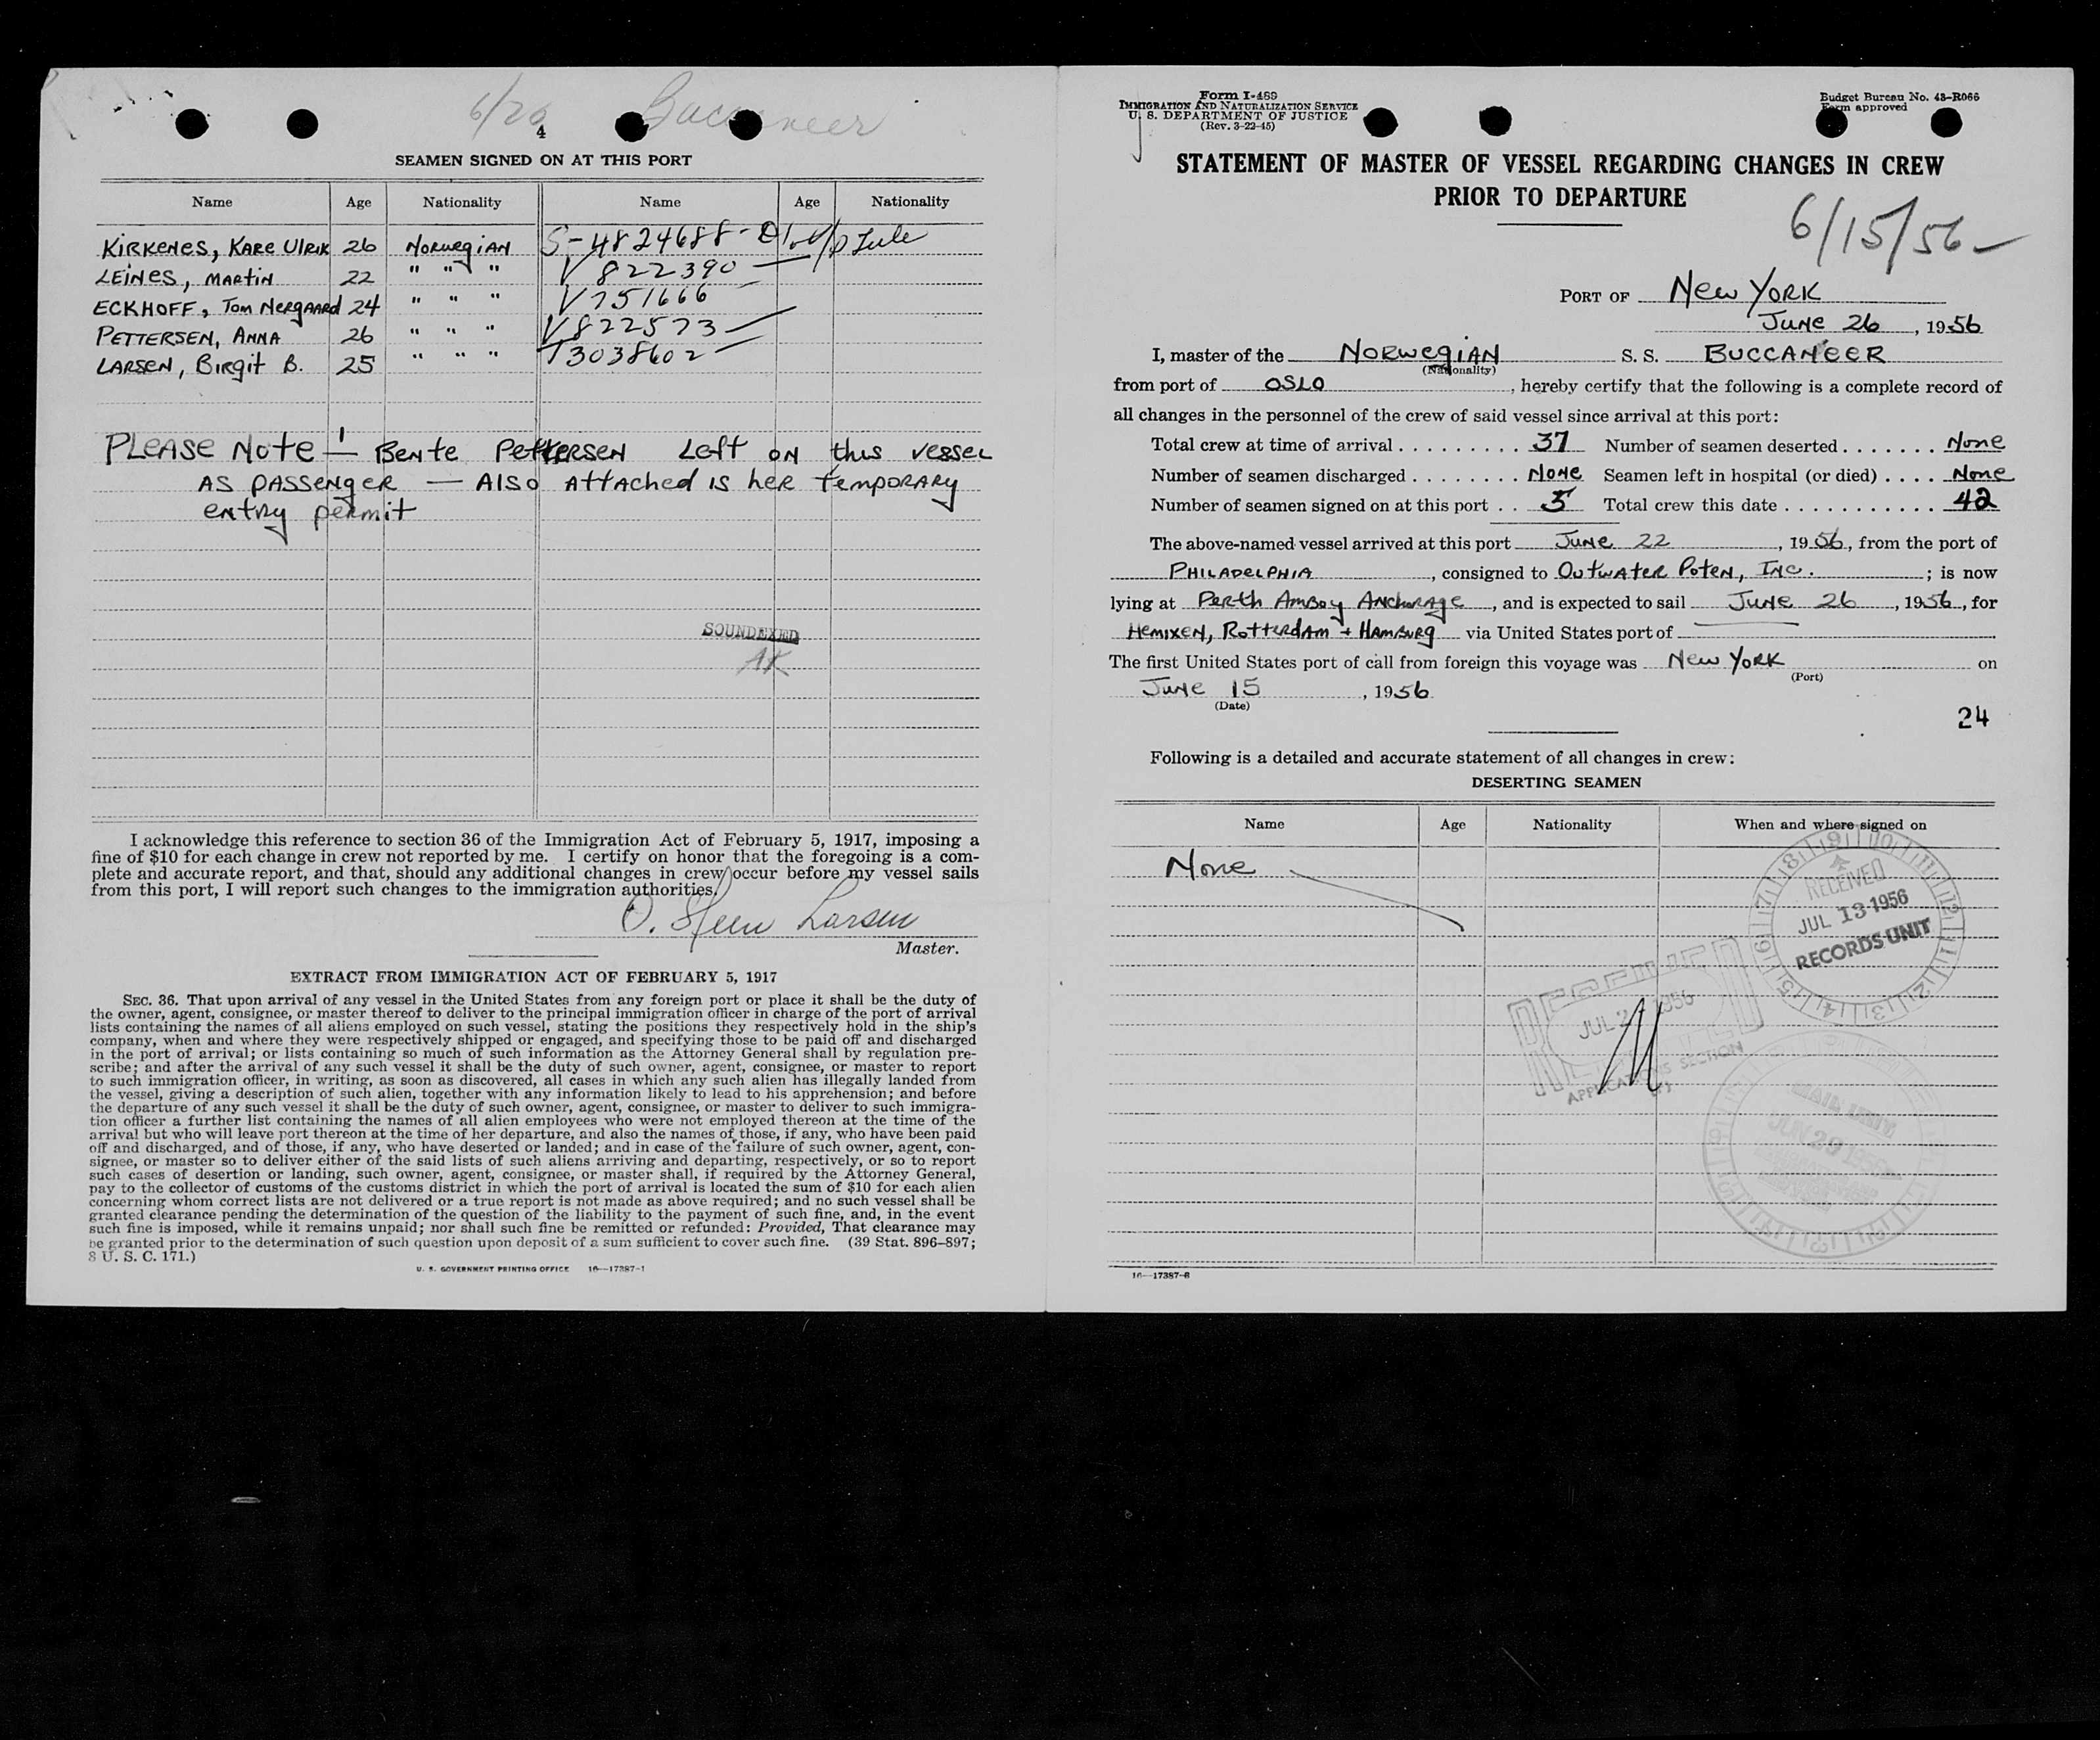 6/26 Buccaneer
4
SEAMEN SIGNED ON AT THIS PORT
Name Age Nationality Name Age Nationality
KIRKENES, KARE ULRIK 26 NORWEGIAN S-4824688-D
LEINES, MARTIN 22 " " " V 822390 —
ECKHOFF, Tom NERGAARD 24 " " " V751666
PETTERSEN, ANNA 26 " " " V822573 —
LARSEN, Birgit B. 25 " " " T3038602 —
PLEASE NOTE ! — BENTE PETTERSEN LEFT ON this vessel
AS PASSENGER — ALSO ATTACHED IS her temporary
entry permit
SOUNDEXED
AK
I acknowledge this reference to section 36 of the Immigration Act of February 5, 1917, imposing a
fine of $10 for each change in crew not reported by me. I certify on honor that the foregoing is a com-
plete and accurate report, and that, should any additional changes in crew occur before my vessel sails
from this port, I will report such changes to the immigration authorities.
O. Steen Larsen
Master.
EXTRACT FROM IMMIGRATION ACT OF FEBRUARY 5, 1917
SEC. 36. That upon arrival of any vessel in the United States from any foreign port or place it shall be the duty of
the owner, agent, consignee, or master thereof to deliver to the principal immigration officer in charge of the port of arrival
lists containing the names of all aliens employed on such vessel, stating the positions they respectively hold in the ship's
company, when and where they were respectively shipped or engaged, and specifying those to be paid off and discharged
in the port of arrival; or lists containing so much of such information as the Attorney General shall by regulation pre-
scribe; and after the arrival of any such vessel it shall be the duty of such owner, agent, consignee, or master to report
to such immigration officer, in writing, as soon as discovered, all cases in which any such alien has illegally landed from
the vessel, giving a description of such alien, together with any information likely to lead to his apprehension; and before
the departure of any such vessel it shall be the duty of such owner, agent, consignee, or master to deliver to such immigra-
tion officer a further list containing the names of all alien employees who were not employed thereon at the time of the
arrival but who will leave port thereon at the time of her departure, and also the names of those, if any, who have been paid
off and discharged, and of those, if any, who have deserted or landed; and in case of the failure of such owner, agent, con-
signee, or master so to deliver either of the said lists of such aliens arriving and departing, respectively, or so to report
such cases of desertion or landing, such owner, agent, consignee, or master shall, if required by the Attorney General,
pay to the collector of customs of the customs district in which the port of arrival is located the sum of $10 for each alien
concerning whom correct lists are not delivered or a true report is not made as above required; and no such vessel shall be
granted clearance pending the determination of the question of the liability to the payment of such fine, and, in the event
such fine is imposed, while it remains unpaid; nor shall such fine be remitted or refunded: Provided, That clearance may
be granted prior to the determination of such question upon deposit of a sum sufficient to cover such fine. (39 Stat. 896–897;
8 U. S. C. 171.)
U. S. GOVERNMENT PRINTING OFFICE 16—17387-1
Form I-489
IMMIGRATION AND NATURALIZATION SERVICE
U. S. DEPARTMENT OF JUSTICE
(Rev. 3-22-45)
Budget Bureau No. 43-R066
Form approved
STATEMENT OF MASTER OF VESSEL REGARDING CHANGES IN CREW
PRIOR TO DEPARTURE
6/15/56
PORT OF New YORK
June 26, 1956
I, master of the NORWEGIAN S. S. BUCCANEER
(Nationality)
from port of OSLO, hereby certify that the following is a complete record of
all changes in the personnel of the crew of said vessel since arrival at this port:
Total crew at time of arrival . . . . . . . . . 37 Number of seamen deserted . . . . . . . None
Number of seamen discharged . . . . . . . . None Seamen left in hospital (or died) . . . . None
Number of seamen signed on at this port . . 5 Total crew this date . . . . . . . . . . . 42
The above-named vessel arrived at this port June 22, 1956, from the port of
PHILADELPHIA, consigned to OUTWATER POTEN, INC.; is now
lying at Perth Amboy Anchorage, and is expected to sail June 26, 1956, for
HEMIXEN, ROTTERDAM + HAMBURG via United States port of
The first United States port of call from foreign this voyage was New York on
(Port)
June 15, 1956
(Date)
24
Following is a detailed and accurate statement of all changes in crew:
DESERTING SEAMEN
Name Age Nationality When and where signed on
None
RECEIVED
JUL 13 1956
RECORDS UNIT
RECEIVED
JUL 2 1956
APPLICATIONS SECTION
MAIL UNIT
JUN 29 1956
16—17387-8